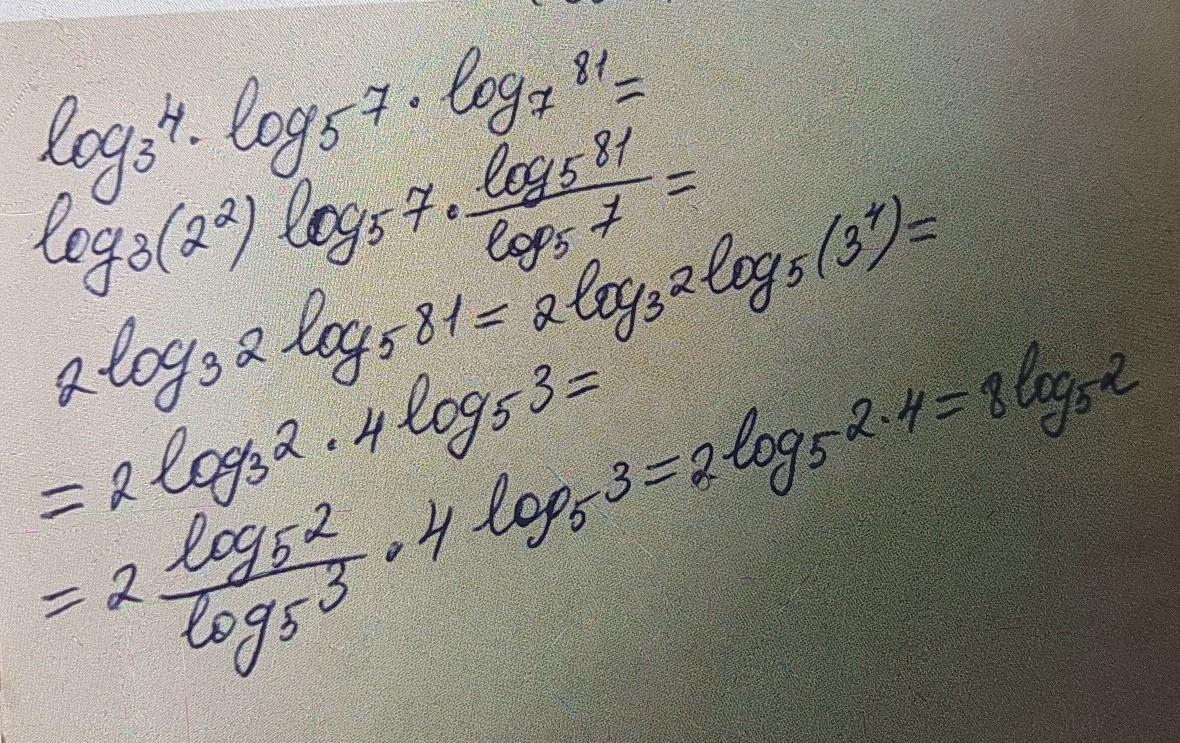 log₃4 · log₅7 · log₇81 =
log₃(2²) log₅7 · log₅81 / log₅7 =
2 log₃2 log₅81 = 2 log₃2 log₅(3⁴) =
= 2 log₃2 · 4 log₅3 =
= 2 log₅2 / log₅3 · 4 log₅3 = 2 log₅2 · 4 = 8 log₅2